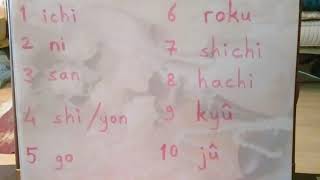 1 ichi
2 ni
3 san
4 shi/yon
5 go
6 roku
7 shichi
8 hachi
9 kyû
10 jû